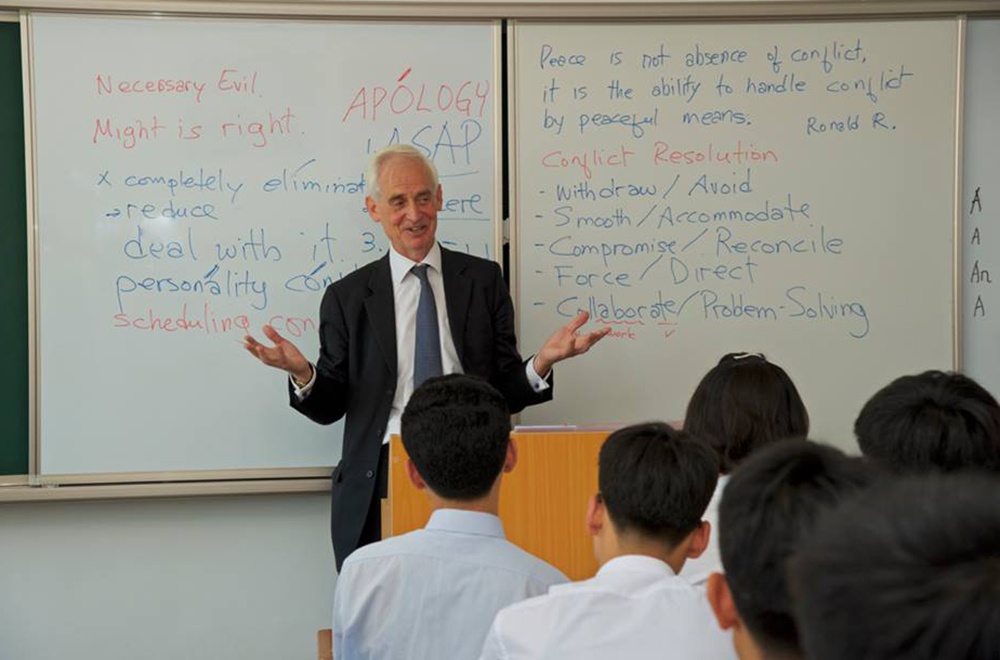 Necessary Evil.
Might is right.
APÓLOGY
1. ASAP
x completely eliminat
→ reduce
ere
deal with it. 3.
personality con
scheduling con
Peace is not absence of conflict,
it is the ability to handle conflict
by peaceful means.
Ronald R.
Conflict Resolution
- Withdraw / Avoid
- Smooth / Accommodate
- Compromise / Reconcile
- Force / Direct
- Collaborate / Problem-Solving
A
A
An
A